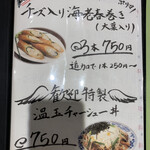 チーズ入り海老春巻き
(大葉入り)
3本 750円
追加で1本250円〜
歓迎 特製
温玉チャーシュー丼
750円